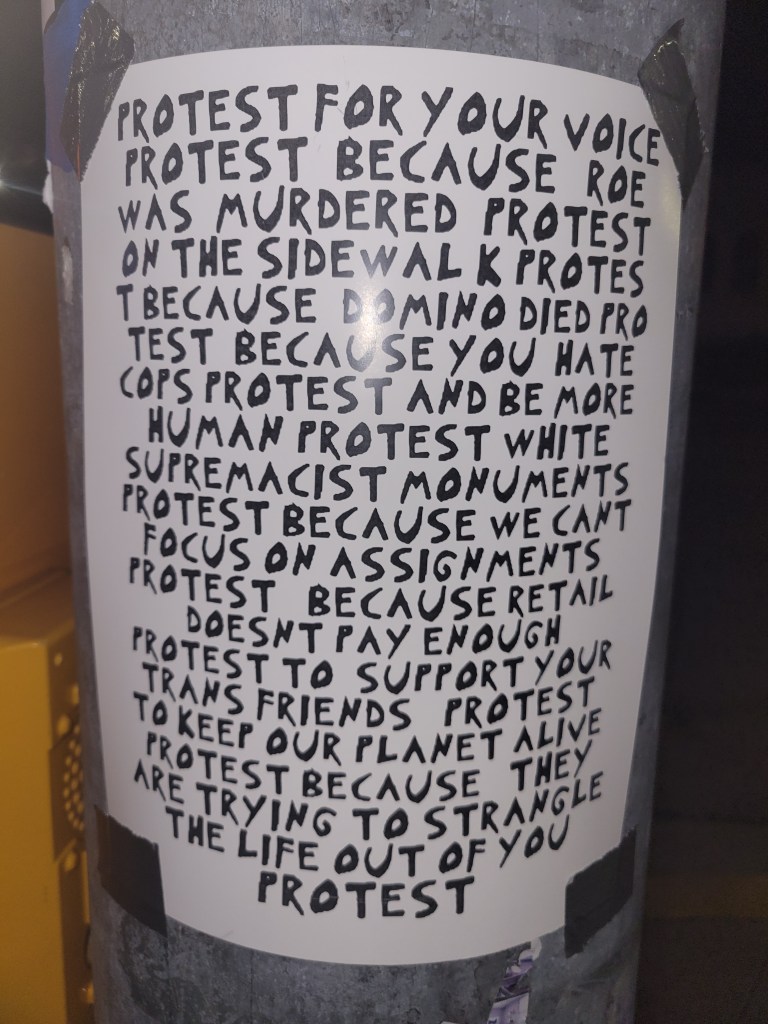 PROTEST FOR YOUR VOICE
PROTEST BECAUSE ROE
WAS MURDERED PROTEST
ON THE SIDEWALK PROTES
T BECAUSE DOMINO DIED PRO
TEST BECAUSE YOU HATE
COPS PROTEST AND BE MORE
HUMAN PROTEST WHITE
SUPREMACIST MONUMENTS
PROTEST BECAUSE WE CANT
FOCUS ON ASSIGNMENTS
PROTEST BECAUSE RETAIL
DOESNT PAY ENOUGH
PROTEST TO SUPPORT YOUR
TRANS FRIENDS PROTEST
TO KEEP OUR PLANET ALIVE
PROTEST BECAUSE THEY
ARE TRYING TO STRANGLE
THE LIFE OUT OF YOU
PROTEST